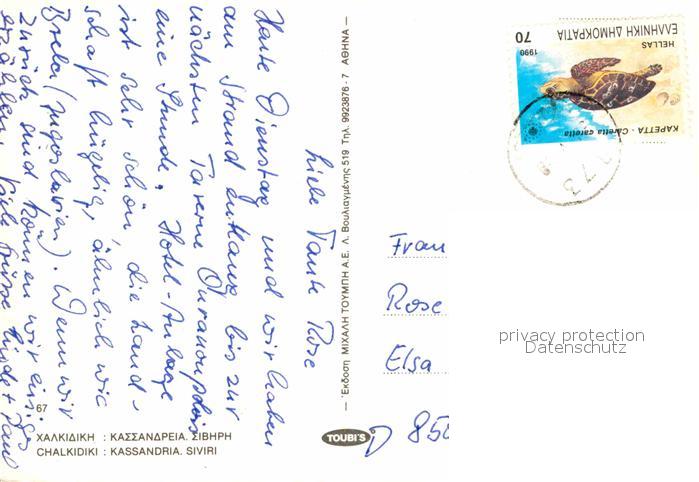 Liebe Tante Rose
Heute Dienstag und wir haben
am Strand entlang bis zur
nächsten Taverne Ouranoupolis
eine Stunde. Hotel-Anlage
ist sehr schön, die Land-
schaft hügelig, ähnlich wie
Brela (Jugoslavien). Wenn wir
zurück sind können wir einiges
erzählen. Viele Grüsse
67
ΧΑΛΚΙΔΙΚΗ : ΚΑΣΣΑΝΔΡΕΙΑ. ΣΙΒΗΡΗ
CHALKIDIKI : KASSANDRIA. SIVIRI
— Έκδοση ΜΙΧΑΛΗ ΤΟΥΜΠΗ Α.Ε. Λ. Βουλιαγμένης 519 Τηλ. 9923876 - 7 ΑΘΗΝΑ —
TOUBI'S
ΕΛΛΗΝΙΚΗ ΔΗΜΟΚΡΑΤΙΑ
HELLAS
1990
70
ΚΑΡΕΤΤΑ - Caretta caretta
73
Frau
Rose
Elsa
D 850
privacy protection
Datenschutz